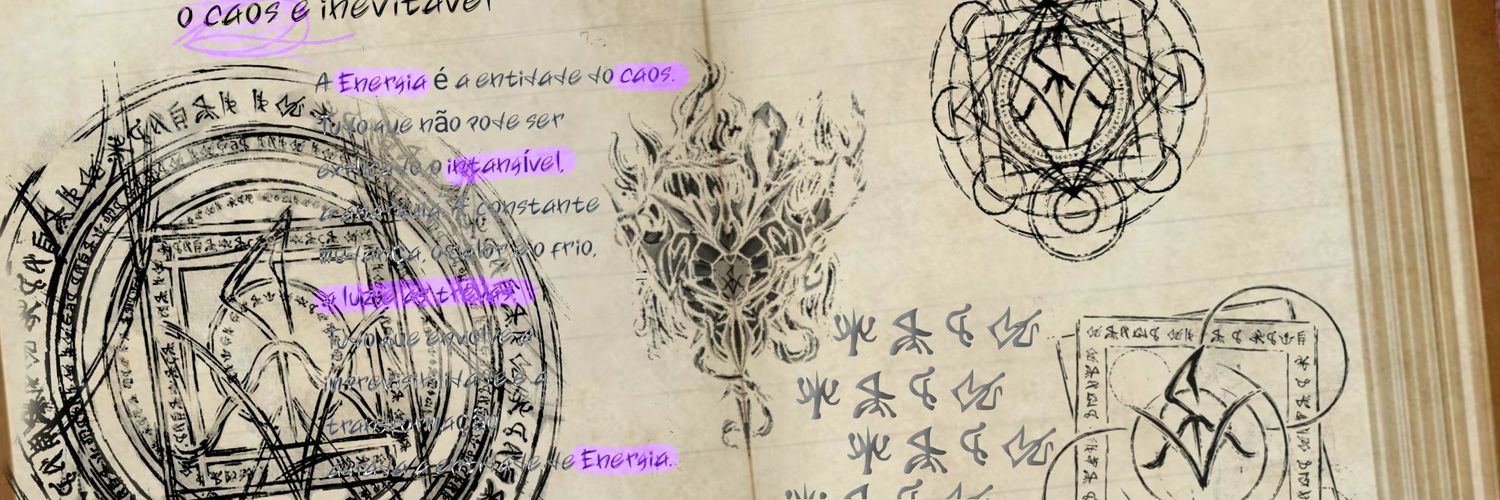 o caos é inevitável
A Energia é a entidade do caos.
Tudo que não pode ser
explicado o intangível,
a energia é constante
mudança. o calor e o frio,
a luz e as trevas.
Tudo que envolve a
imprevisibilidade e a
transformação
entidade de Energia.